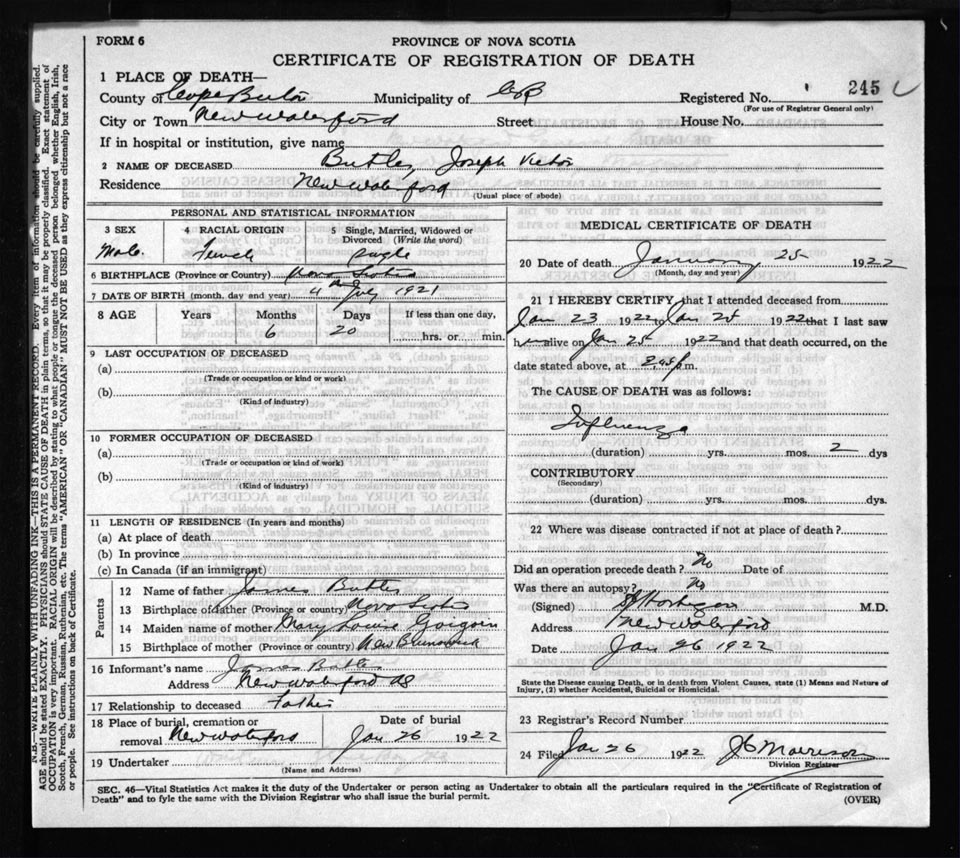 FORM 6
PROVINCE OF NOVA SCOTIA
CERTIFICATE OF REGISTRATION OF DEATH
245
1 PLACE OF DEATH—
County of Cape Breton Municipality of C B Registered No.
(For use of Registrar General only)
City or Town New Waterford Street House No.
If in hospital or institution, give name
2 NAME OF DECEASED Butler, Joseph Victor
Residence New Waterford
(Usual place of abode)
PERSONAL AND STATISTICAL INFORMATION
3 SEX 4 RACIAL ORIGIN 5 Single, Married, Widowed or Divorced (Write the word)
Male French single
6 BIRTHPLACE (Province or Country) Nova Scotia
7 DATE OF BIRTH (month, day and year) 4 July 1921
8 AGE Years Months Days If less than one day,
6 20 hrs. or min.
9 LAST OCCUPATION OF DECEASED
(a)
(Trade or occupation or kind or work)
(b)
(Kind of industry)
10 FORMER OCCUPATION OF DECEASED
(a)
(Trade or occupation or kind of work)
(b)
(Kind of industry)
11 LENGTH OF RESIDENCE (In years and months)
(a) At place of death
(b) In province
(c) In Canada (if an immigrant)
Parents
12 Name of father James Butler
13 Birthplace of father (Province or country) Nova Scotia
14 Maiden name of mother Mary Louise
15 Birthplace of mother (Province or country) New Brunswick
16 Informant's name James Butler
Address New Waterford
17 Relationship to deceased Father
18 Place of burial, cremation or Date of burial
removal New Waterford Jan 26 1922
19 Undertaker
(Name and Address)
MEDICAL CERTIFICATE OF DEATH
20 Date of death January 25 1922
(Month, day and year)
21 I HEREBY CERTIFY, that I attended deceased from
Jan 23 1922 to Jan 25 1922 that I last saw
him alive on Jan 25 1922 and that death occurred, on the
date stated above, at p.m.
The CAUSE OF DEATH was as follows:
Influenza
(duration) yrs. mos. 2 dys
CONTRIBUTORY
(Secondary)
(duration) yrs. mos. dys.
22 Where was disease contracted if not at place of death?
Did an operation precede death? No Date of
Was there an autopsy? No
(Signed) M.D.
Address New Waterford
Date Jan 26 1922
State the Disease causing Death, or in death from Violent Causes, state (1) Means and Nature of
Injury, (2) whether Accidental, Suicidal or Homicidal.
23 Registrar's Record Number
24 Filed Jan 26 1922 Morrison
Division Registrar
SEC. 46—Vital Statistics Act makes it the duty of the Undertaker or person acting as Undertaker to obtain all the particulars required in the "Certificate of Registration of
Death" and to fyle the same with the Division Registrar who shall issue the burial permit.
(OVER)
N.B.—WRITE PLAINLY WITH UNFADING INK—THIS IS A PERMANENT RECORD. Every item of information should be carefully supplied.
AGE should be stated EXACTLY. PHYSICIANS should STATE CAUSE OF DEATH in plain terms, so that it may be properly classified. Exact statement of
OCCUPATION is very important. RACIAL ORIGIN will be described by stating to what people or tongue the deceased person belonged whether English, Irish,
Scotch, French, German, Russian, Ruthenian, etc. The terms "AMERICAN" OR "CANADIAN" MUST NOT BE USED as they express citizenship but not a race
or people. See instructions on back of Certificate.